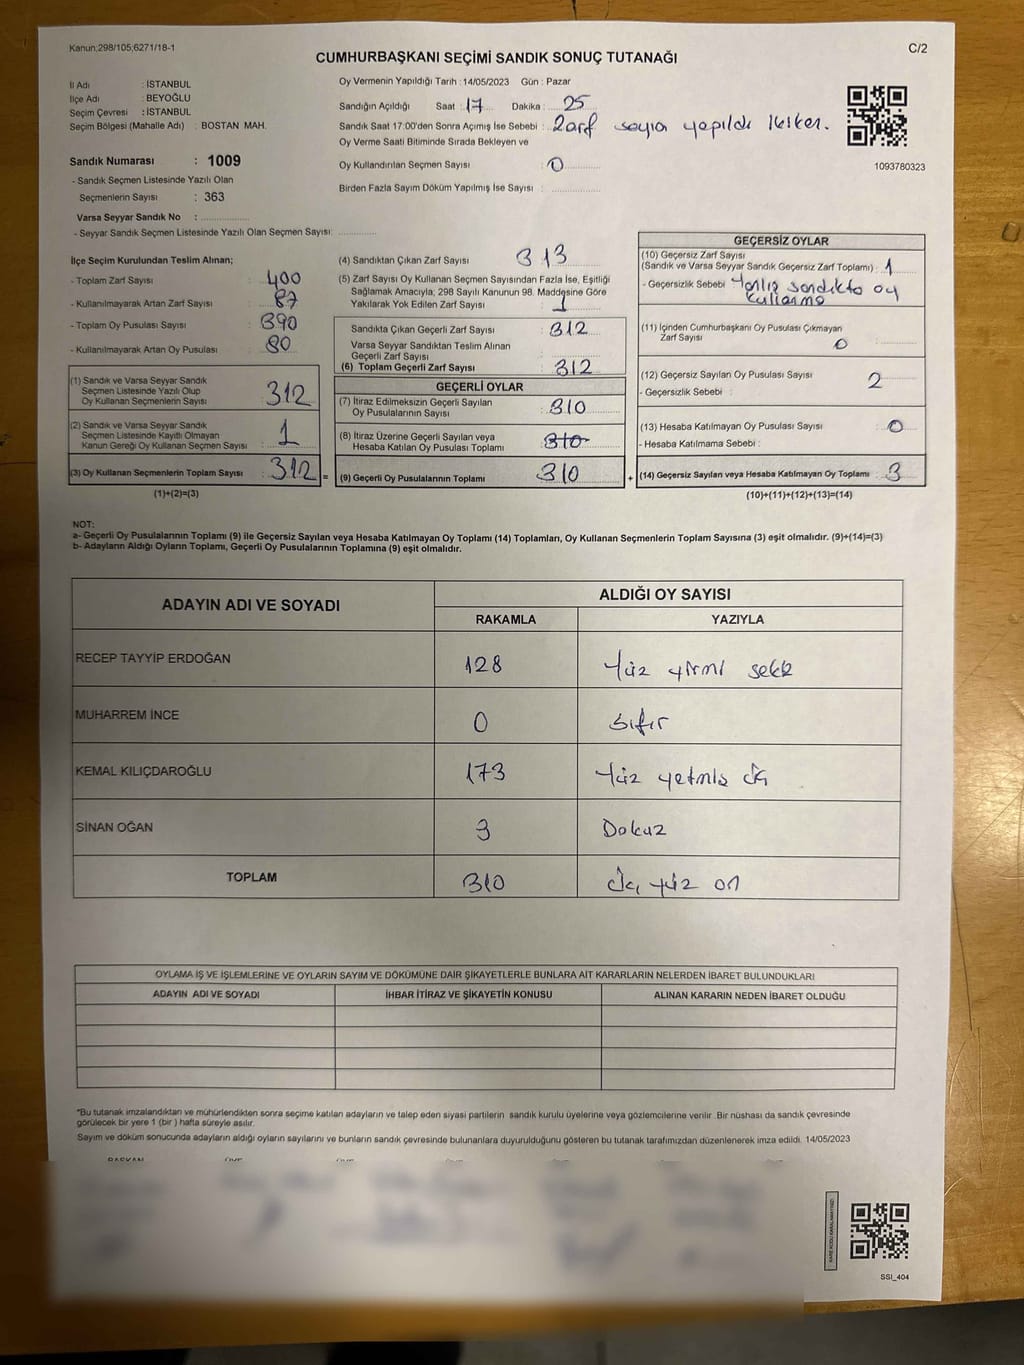 Kanun:298/105;6271/18-1
C/2
CUMHURBAŞKANI SEÇİMİ SANDIK SONUÇ TUTANAĞI
İl Adı : İSTANBUL
İlçe Adı : BEYOĞLU
Seçim Çevresi : İSTANBUL
Seçim Bölgesi (Mahalle Adı) : BOSTAN MAH.
Oy Vermenin Yapıldığı Tarih :14/05/2023 Gün : Pazar
Sandığın Açıldığı Saat : 17 Dakika : 25
Sandık Saat 17:00'den Sonra Açımış İse Sebebi : Zarf sayım yapıldı
Oy Verme Saati Bitiminde Sırada Bekleyen ve
Oy Kullandırılan Seçmen Sayısı : 0
Birden Fazla Sayım Döküm Yapılmış İse Sayısı :
1093780323
Sandık Numarası : 1009
- Sandık Seçmen Listesinde Yazılı Olan
Seçmenlerin Sayısı : 363
Varsa Seyyar Sandık No :
- Seyyar Sandık Seçmen Listesinde Yazılı Olan Seçmen Sayısı:
İlçe Seçim Kurulundan Teslim Alınan;
- Toplam Zarf Sayısı : 400
- Kullanılmayarak Artan Zarf Sayısı : 87
- Toplam Oy Pusulası Sayısı : 390
- Kullanılmayarak Artan Oy Pusulası : 80
(1) Sandık ve Varsa Seyyar Sandık
Seçmen Listesinde Yazılı Olup
Oy Kullanan Seçmenlerin Sayısı : 312
(2) Sandık ve Varsa Seyyar Sandık
Seçmen Listesinde Kayıtlı Olmayan
Kanun Gereği Oy Kullanan Seçmen Sayısı : 1
(3) Oy Kullanan Seçmenlerin Toplam Sayısı : 312 =
(1)+(2)=(3)
(4) Sandıktan Çıkan Zarf Sayısı : 313
(5) Zarf Sayısı Oy Kullanan Seçmen Sayısından Fazla İse, Eşitliği
Sağlamak Amacıyla; 298 Sayılı Kanunun 98. Maddesine Göre
Yakılarak Yok Edilen Zarf Sayısı : 1
Sandıkta Çıkan Geçerli Zarf Sayısı : 312
Varsa Seyyar Sandıktan Teslim Alınan
Geçerli Zarf Sayısı :
(6) Toplam Geçerli Zarf Sayısı : 312
GEÇERLİ OYLAR
(7) İtiraz Edilmeksizin Geçerli Sayılan
Oy Pusulalarının Sayısı : 310
(8) İtiraz Üzerine Geçerli Sayılan veya
Hesaba Katılan Oy Pusulası Toplamı : 310
(9) Geçerli Oy Pusulalarının Toplamı : 310 +
GEÇERSİZ OYLAR
(10) Geçersiz Zarf Sayısı
(Sandık ve Varsa Seyyar Sandık Geçersiz Zarf Toplamı) : 1
- Geçersizlik Sebebi : Yanlış sandıkta oy
kullanma
(11) İçinden Cumhurbaşkanı Oy Pusulası Çıkmayan
Zarf Sayısı : 0
(12) Geçersiz Sayılan Oy Pusulası Sayısı : 2
- Geçersizlik Sebebi :
(13) Hesaba Katılmayan Oy Pusulası Sayısı : 0
- Hesaba Katılmama Sebebi :
(14) Geçersiz Sayılan veya Hesaba Katılmayan Oy Toplamı : 3
(10)+(11)+(12)+(13)=(14)
NOT:
a- Geçerli Oy Pusulalarının Toplamı (9) ile Geçersiz Sayılan veya Hesaba Katılmayan Oy Toplamı (14) Toplamları, Oy Kullanan Seçmenlerin Toplam Sayısına (3) eşit olmalıdır. (9)+(14)=(3)
b- Adayların Aldığı Oyların Toplamı, Geçerli Oy Pusulalarının Toplamına (9) eşit olmalıdır.
ADAYIN ADI VE SOYADI
ALDIĞI OY SAYISI
RAKAMLA YAZIYLA
RECEP TAYYİP ERDOĞAN 128 Yüz yirmi sekiz
MUHARREM İNCE 0 sıfır
KEMAL KILIÇDAROĞLU 173 Yüz yetmiş
SİNAN OĞAN 3 Dokuz
TOPLAM 310 yüz on
OYLAMA İŞ VE İŞLEMLERİNE VE OYLARIN SAYIM VE DÖKÜMÜNE DAİR ŞİKAYETLERLE BUNLARA AİT KARARLARIN NELERDEN İBARET BULUNDUKLARI
ADAYIN ADI VE SOYADI İHBAR İTİRAZ VE ŞİKAYETİN KONUSU ALINAN KARARIN NEDEN İBARET OLDUĞU
*Bu tutanak imzalandıktan ve mühürlendikten sonra seçime katılan adayların ve talep eden siyasi partilerin sandık kurulu üyelerine veya gözlemcilerine verilir. Bir nüshası da sandık çevresinde
görülecek bir yere 1 (bir ) hafta süreyle asılır.
Sayım ve döküm sonucunda adayların aldığı oyların sayılarını ve bunların sandık çevresinde bulunanlara duyurulduğunu gösteren bu tutanak tarafımızdan düzenlenerek imza edildi. 14/05/2023
SSI_404